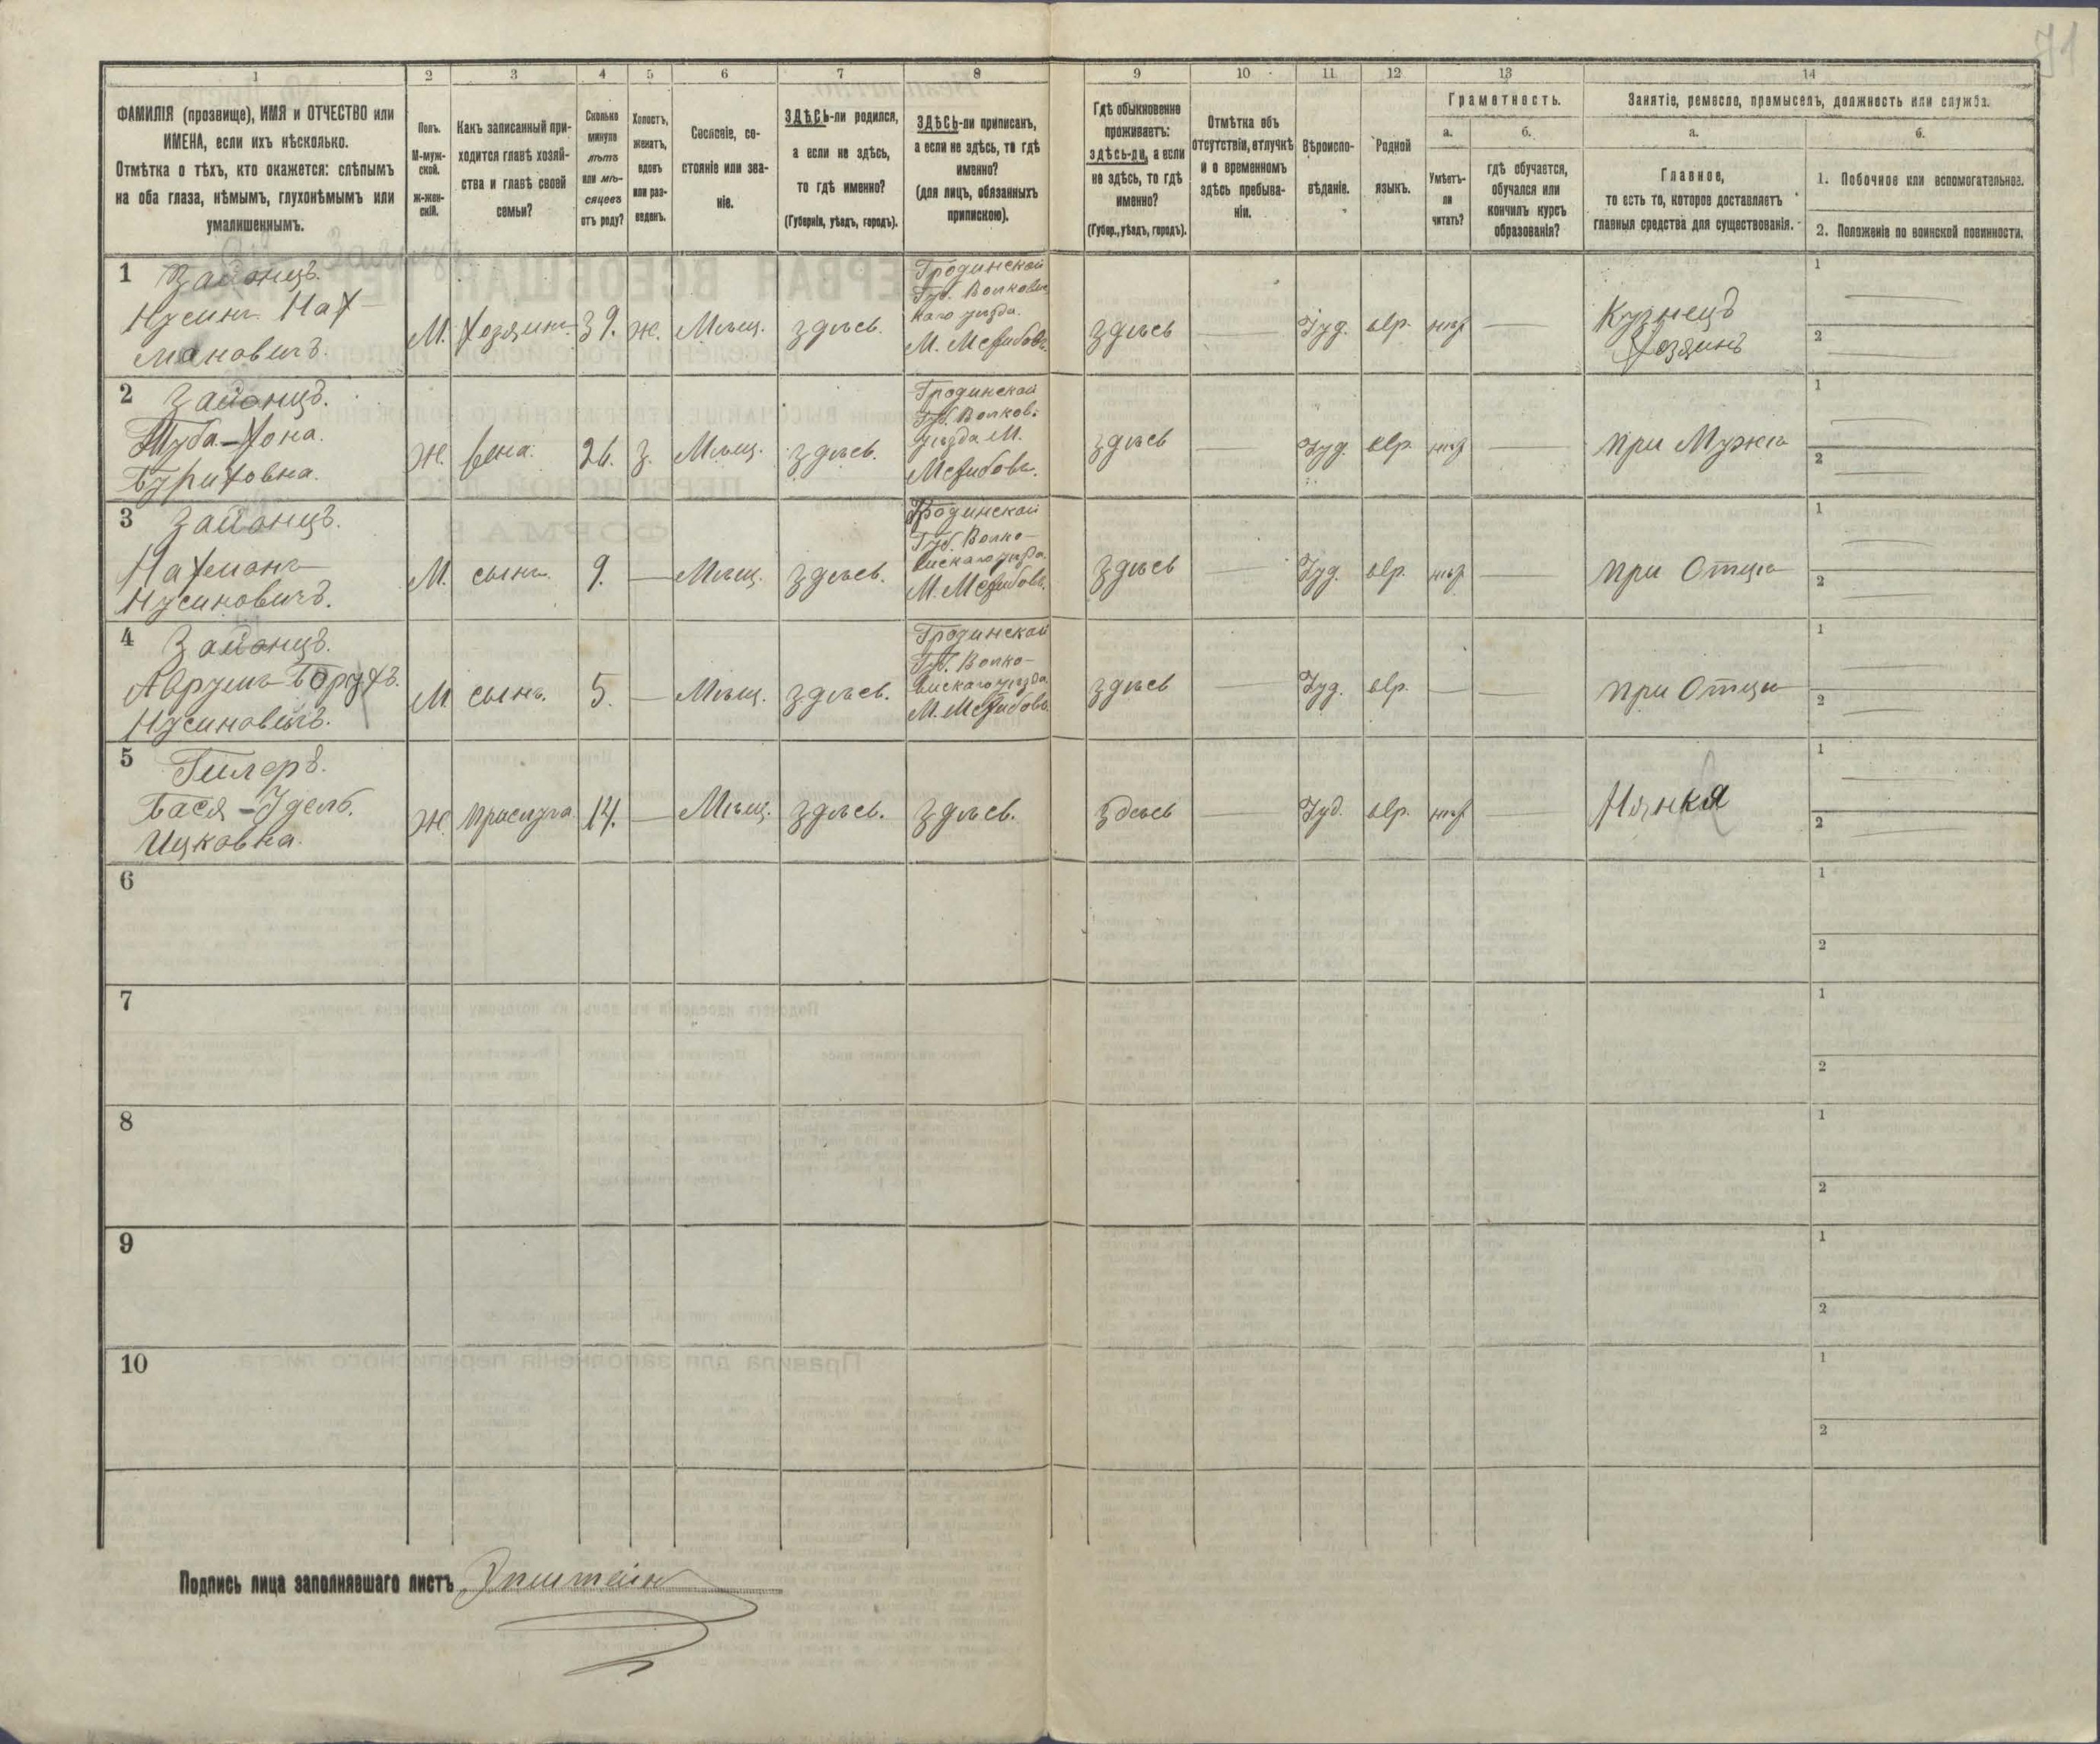 71
1 2 3 4 5 6 7 8 9 10 11 12 13 14
ФАМИЛІЯ (прозвище), ИМЯ и ОТЧЕСТВО или
ИМЕНА, если ихъ нѣсколько.
Отмѣтка о тѣхъ, кто окажется: слѣпымъ
на оба глаза, нѣмымъ, глухонѣмымъ или
умалишеннымъ.
Полъ.
М-муж-
ской.
Ж-жен-
скій.
Какъ записанный при-
ходится главѣ хозяй-
ства и главѣ своей
семьи?
Сколько
минуло
лѣтъ
или мѣ-
сяцевъ
отъ роду?
Холостъ,
женатъ,
вдовъ
или раз-
веденъ.
Сословіе, со-
стояніе или зва-
ніе.
ЗДѢСЬ-ли родился,
а если не здѣсь,
то гдѣ именно?
(Губернія, уѣздъ, городъ).
ЗДѢСЬ-ли приписанъ,
а если не здѣсь, то гдѣ
именно?
(для лицъ, обязанныхъ
припискою).
Гдѣ обыкновенно
проживаетъ:
здѣсь-ли, а если
не здѣсь, то гдѣ
именно?
(Губер., уѣздъ, городъ).
Отмѣтка объ
отсутствіи, отлучкѣ
и о временномъ
здѣсь пребыва-
ніи.
Вѣроиспо-
вѣданіе.
Родной
языкъ.
Грамотность.
а.
Умѣетъ-
ли
читать?
б.
гдѣ обучается,
обучался или
кончилъ курсъ
образованія?
Занятіе, ремесло, промыселъ, должность или служба.
а.
Главное,
то есть то, которое доставляетъ
главныя средства для существованія.
б.
1. Побочное или вспомогательное.
2. Положеніе по воинской повинности.
1 Зайонцъ.
Нусинъ Нах-
мановичъ.
М. Хозяинъ 39. ж. Мѣщ. здѣсь.
Гродинской
Губ. Волковис
каго уѣзда.
М. Мстибовъ.
здѣсь — Іуд. евр. нѣт —
Кузнецъ
Хозяинъ
1 —
2 —
2 Зайонцъ.
Туба-Хона.
Бурихов​на.
Ж. Жена. 26. З. Мѣщ. здѣсь.
Гродинской
Губ. Волков:
уѣзда М.
Мстибовъ.
здѣсь — Іуд. евр. нѣт — при Мужѣ
1 —
2 —
3 Зайонцъ.
Нахманъ
Нусиновичъ.
М. сынъ. 9. — Мѣщ. здѣсь.
Гродинской
Губ. Волко-
вискаго уѣзда.
М. Мстибовъ.
здѣсь — Іуд. евр. нѣт — при Отцѣ
1 —
2 —
4 Зайонцъ.
Аврумъ-Борухъ.
Нусиновичъ.
М сынъ. 5. — Мѣщ. здѣсь.
Гродинской
Губ. Волко-
вискаго уѣзда
М. Мстибовъ
здѣсь — Іуд. евр. — — при Отцѣ
1 —
2 —
5 Гилеръ.
Бася-Удель.
Ицковна.
Ж. прислуга. 14. — Мѣщ. здѣсь. здѣсь.
здѣсь — Іуд. евр. нѣт — Нянька
1 —
2 —
6
1
2
7
1
2
8
1
2
9
1
2
10
1
2
Подпись лица заполнявшаго листъ